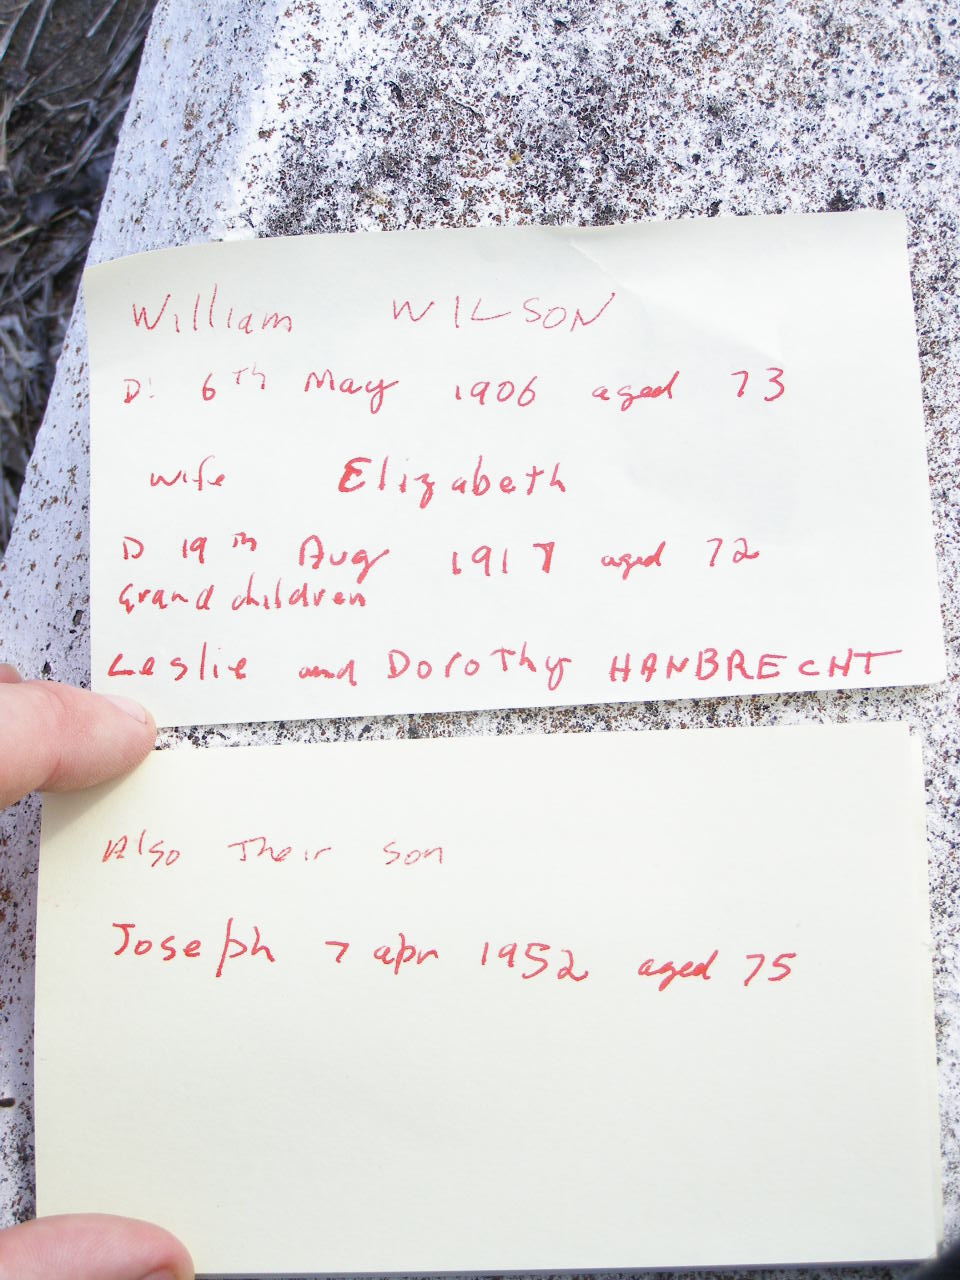 William WILSON
D: 6th May 1906 aged 73
wife Elizabeth
D 19th Aug 1917 aged 72
Grand children
Leslie and Dorothy HANBRECHT
Also Their son
Joseph 7 apr 1952 aged 75